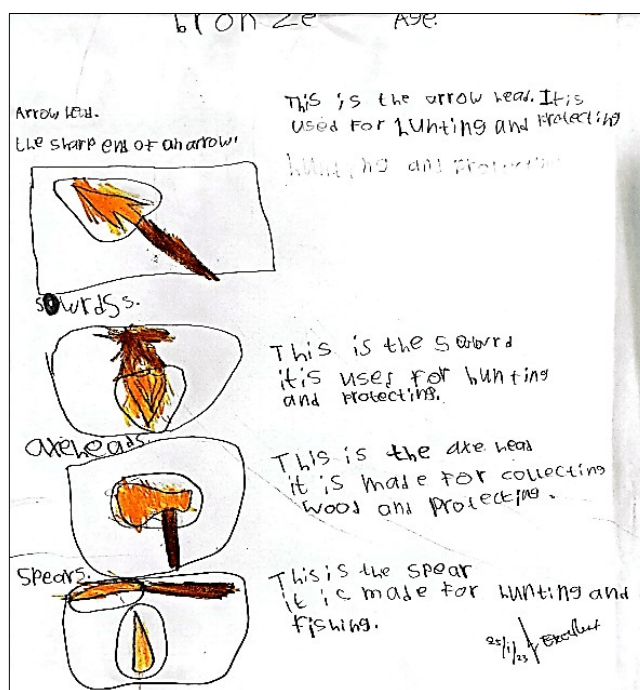 bronze Age.
Arrow head.
the sharp end of an arrow.
This is the arrow head. It is
used for hunting and protecting
hunting and protectin
sowrdss.
This is the
it is uses for hunting
and protecting.
axeheads
This is the axe head
it is made for collecting
wood and protecting.
Spears.
This is the spear
it is made for hunting and
fishing.
25/1/23 Excellent